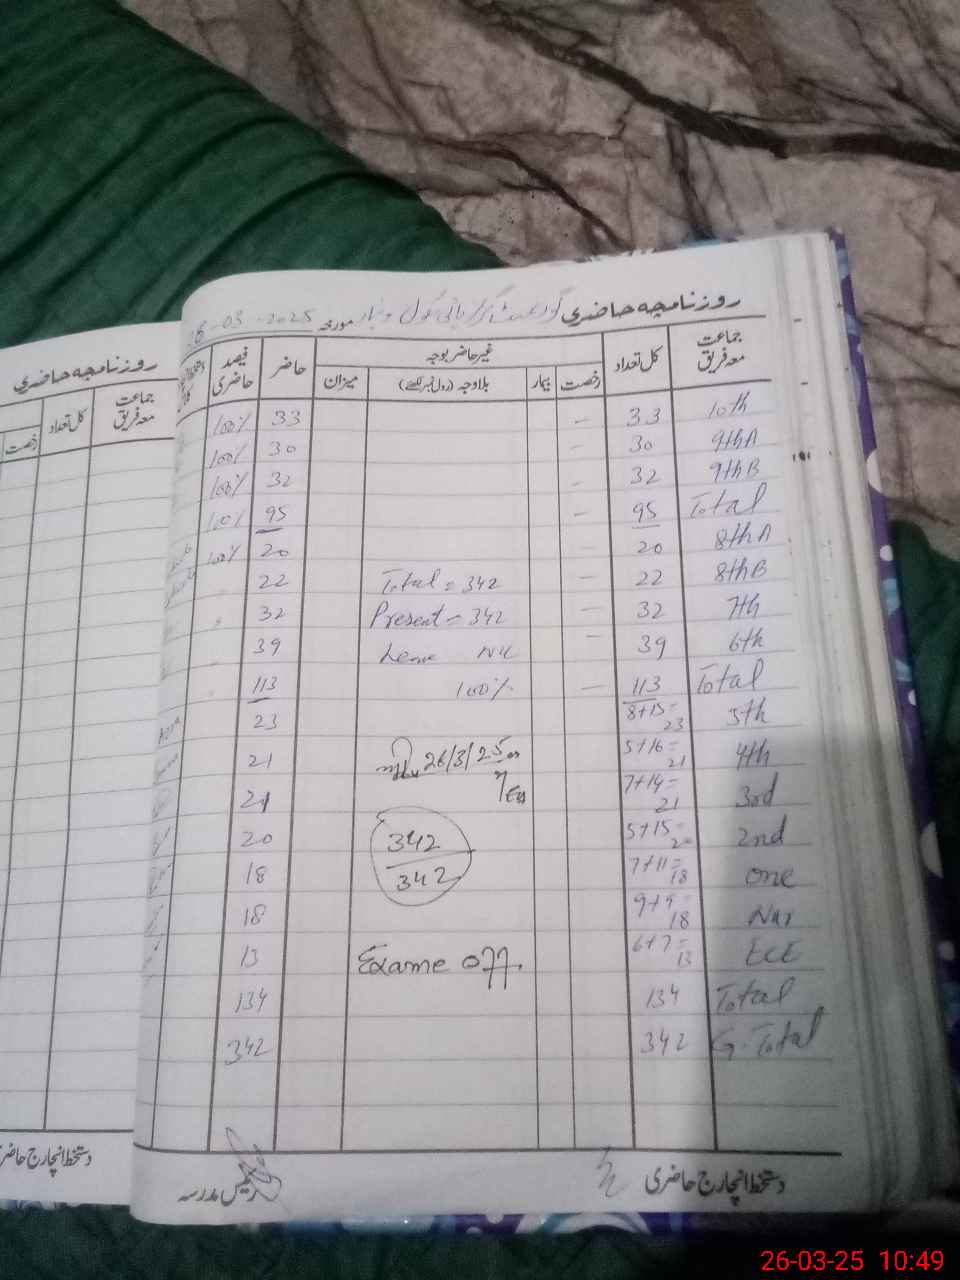 روزنامچہ حاضری گورنمنٹ گرلز ہائی سکول مورخہ 26-03-2025
جماعت معہ فریق کل تعداد غیر حاضر بوجہ حاضر فیصد حاضری
رخصت بیمار بلاوجہ (رول نمبر لکھئے) میزان
10th 33 – 33 100%
9thA 30 – 30 100%
9thB 32 – 32 100%
Total 95 – 95 100%
8thA 20 – 20 100%
8thB 22 – Total = 342 22
7th 32 – Present = 342 32
6th 39 – Leave Nil 39
Total 113 – 100% 113
5th 8+15=23 23
4th 5+16=21 26/3/25 21
3rd 7+14=21 21
2nd 5+15=20 342 20
one 7+11=18 342 18
Nur 9+9=18 18
ECE 6+7=13 Exame off. 13
Total 134 134
G.Total 342 342
دستخط انچارج حاضری رئیس مدرسہ
روزنامچہ حاضری
جماعت معہ فریق کل تعداد
رخصت
دستخط انچارج
26-03-25 10:49